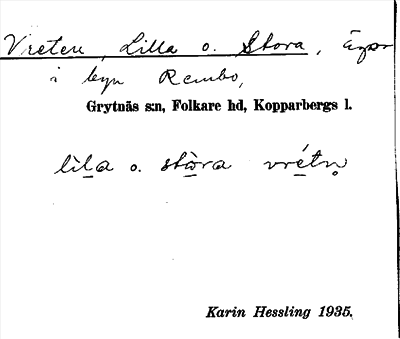 Vreten, Lilla o. Stora, Ägor
i byn Rembo,
Grytnäs s:n, Folkare hd, Kopparbergs l.
lìl̲a o. stò̲ra vré̲tn̥
Karin Hessling 1935.